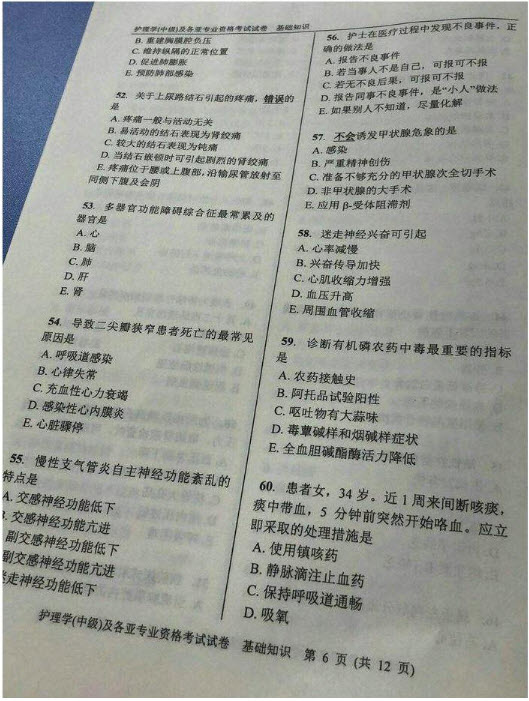 护理学(中级)及各亚专业资格考试试卷 基础知识
B. 重建胸膜腔负压
C. 维持纵隔的正常位置
D. 促进肺膨胀
E. 预防肺部感染
52. 关于上尿路结石引起的疼痛，错误的
是
A. 疼痛一般与活动无关
B. 易活动的结石表现为肾绞痛
C. 较大的结石表现为钝痛
D. 当结石嵌顿时可引起剧烈的肾绞痛
E. 疼痛位于腰或上腹部，沿输尿管放射至
同侧下腹及会阴
53. 多器官功能障碍综合征最常累及的
器官是
A. 心
B. 脑
C. 肺
D. 肝
E. 肾
54. 导致二尖瓣狭窄患者死亡的最常见
原因是
A. 呼吸道感染
B. 心律失常
C. 充血性心力衰竭
D. 感染性心内膜炎
E. 心脏骤停
55. 慢性支气管炎自主神经功能紊乱的
特点是
A. 交感神经功能低下
. 交感神经功能亢进
副交感神经功能低下
副交感神经功能亢进
迷走神经功能低下
56. 护士在医疗过程中发现不良事件，正
确的做法是
A. 报告不良事件
B. 若当事人不是自己，可报可不报
C. 若无不良后果，可报可不报
D. 报告同事不良事件，是“小人”做法
E. 如果别人不知道，尽量化解
57. 不会诱发甲状腺危象的是
A. 感染
B. 严重精神创伤
C. 准备不够充分的甲状腺次全切手术
D. 非甲状腺的大手术
E. 应用 β-受体阻滞剂
58. 迷走神经兴奋可引起
A. 心率减慢
B. 兴奋传导加快
C. 心肌收缩力增强
D. 血压升高
E. 周围血管收缩
59. 诊断有机磷农药中毒最重要的指标
是
A. 农药接触史
B. 阿托品试验阳性
C. 呕吐物有大蒜味
D. 毒蕈碱样和烟碱样症状
E. 全血胆碱酯酶活力降低
60. 患者女，34 岁。近 1 周来间断咳痰，
痰中带血，5 分钟前突然开始咯血。应立
即采取的处理措施是
A. 使用镇咳药
B. 静脉滴注止血药
C. 保持呼吸道通畅
D. 吸氧
护理学(中级)及各亚专业资格考试试卷 基础知识 第 6 页 (共 12 页)